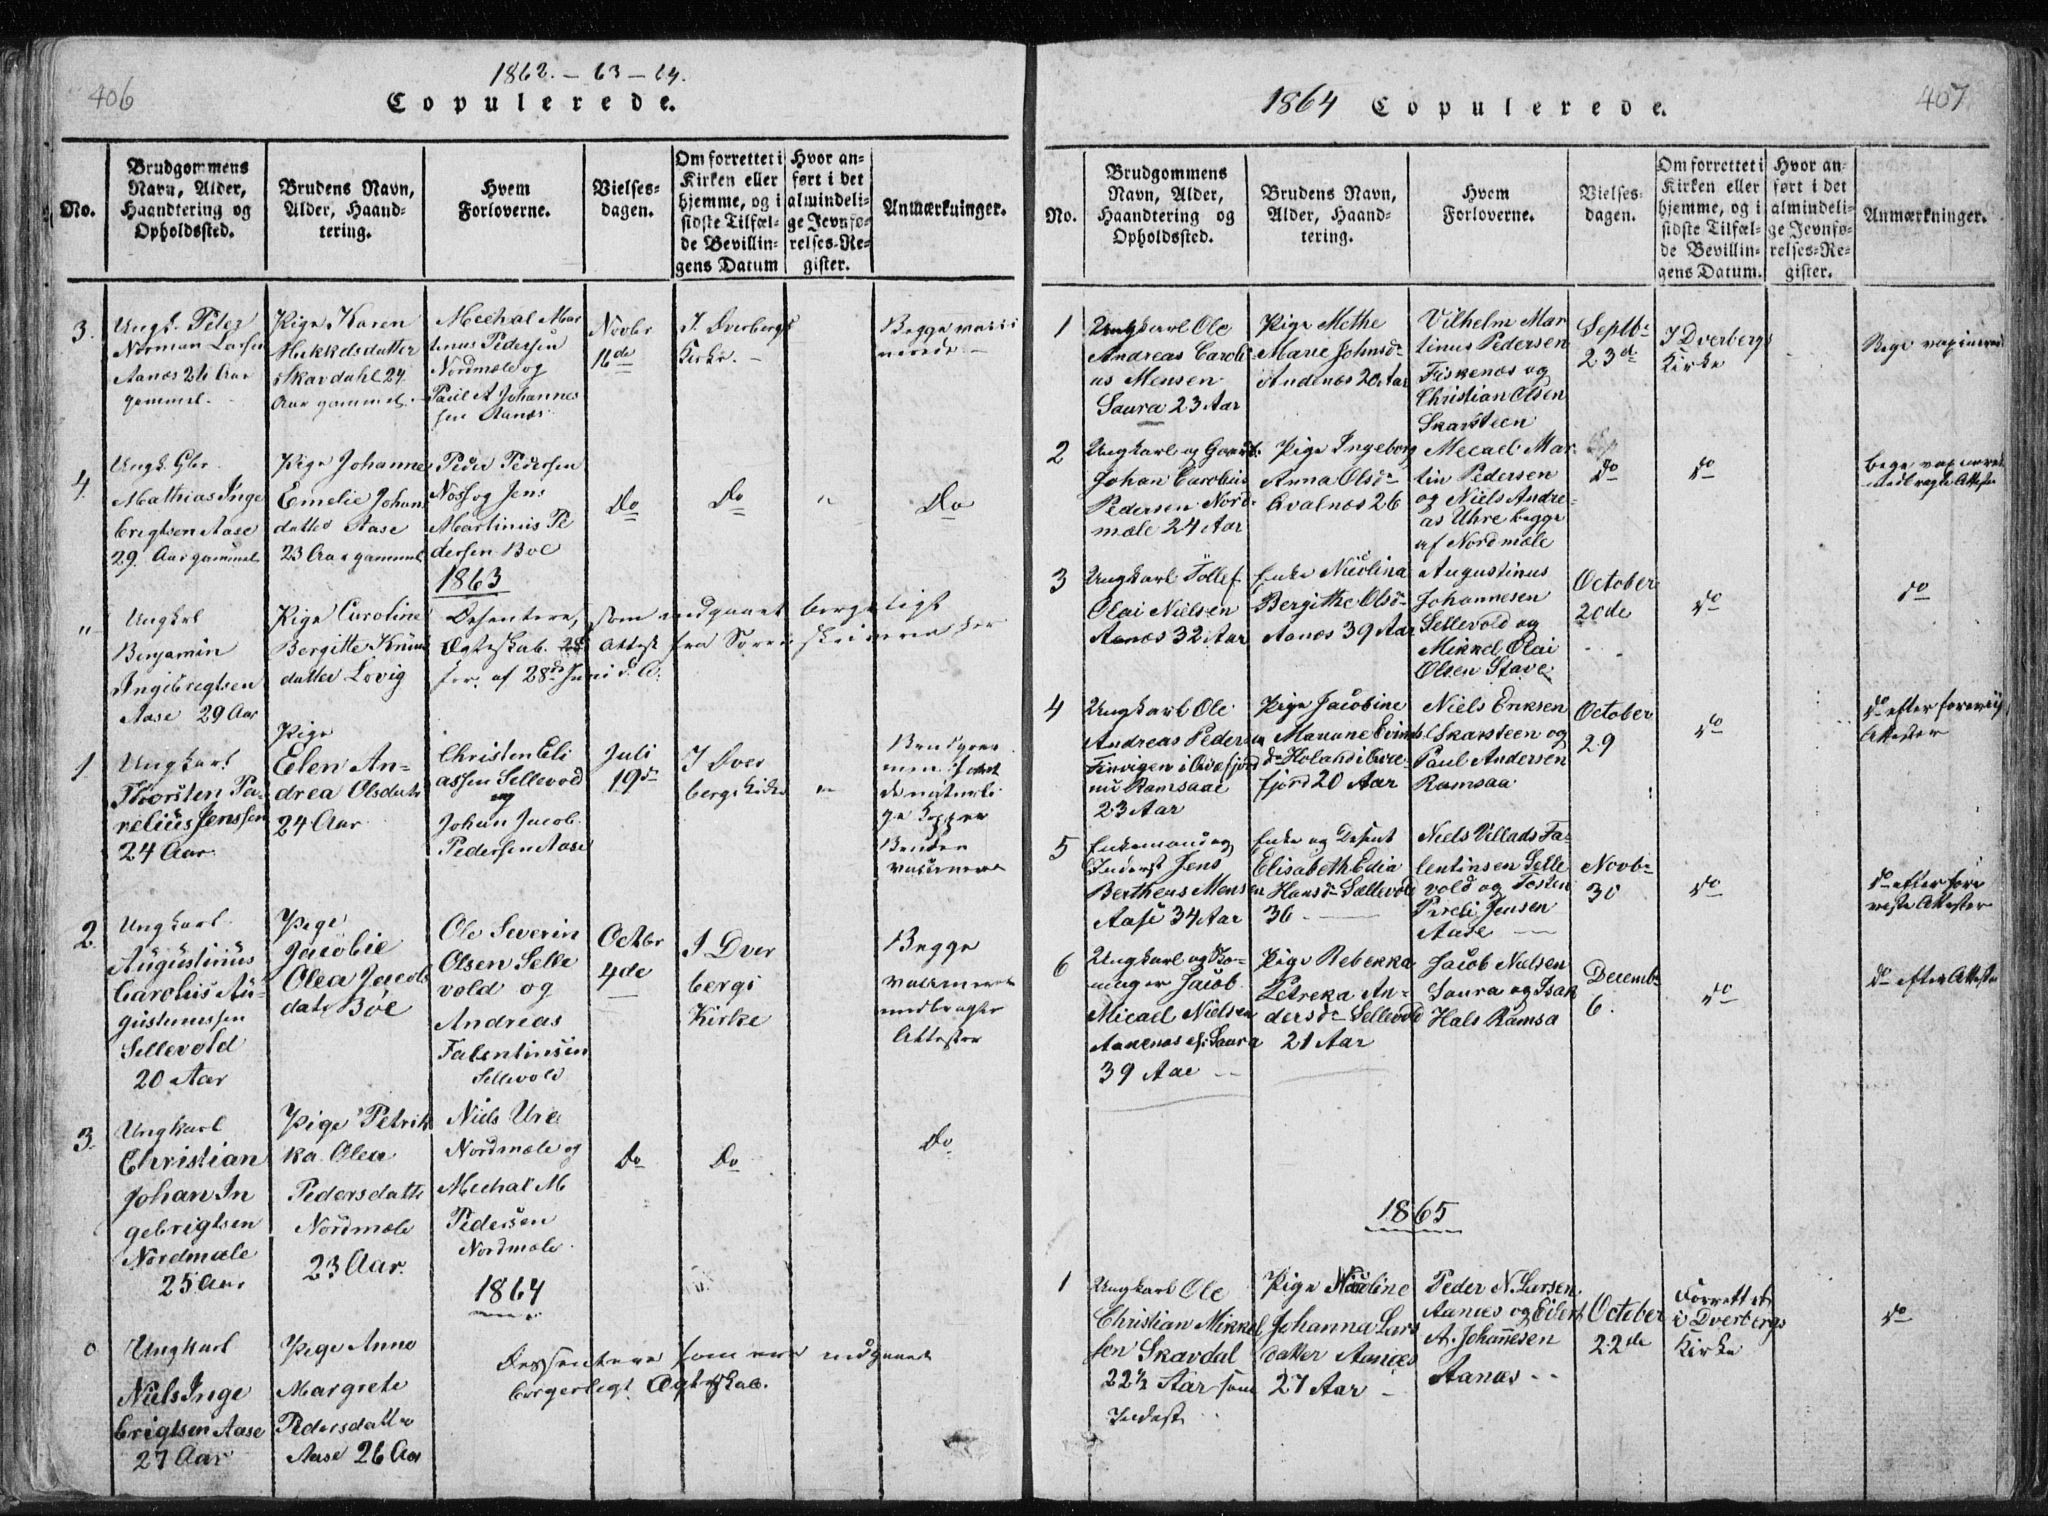 406
1862. – 63 – 64.
Copulerede.
No.
Brudgommens
Navn, Alder,
Haandtering og
Opholdssted.
Brudens Navn,
Alder, Haand-
tering.
Hvem
Forloverne.
Vielses-
dagen.
Om forrettet i
Kirken eller
hjemme, og i
sidste Tilfæl-
de Bevillin-
gens Datum
Hvor an-
ført i det
almindeli-
ge Jevnfø-
relses-Re-
gister.
Anmærkninger.
3.
Ungk. Peter
Norman Larsen
Aanæs 26 Aar
gammel.
Pige Karen
Mikkelsdatter
Skavdahl 24
Aar gammel.
Mechal Mar
tinus Pedersen
Nordmæle og
Paul A Johannes
sen Aanæs.
Novbr
16de
I Dverbergs
Kirke. –
Begge vacci
nerede –
4.
Ungk. Gbr.
Mathias Inge
brigtsen Aase
29. Aar gammel
Pige Johanne
Emelie Johan
datter Aase
23 Aar gammel
Peder Pedersen
Nøss og Jens
Martinus Pe
dersen Boe
Do
Do
"
Do
1863
"
Ungkel
Benjamin
Ingebregtsen
Aase 29 Aar
Pige Caroline
Bergitte Knuds
datter Lovig
Desentere, som indgaaet borgeligt
Ægteskab. Attest fra Sorenskriveren her
for. af 28de Juni d. A.
1
Ungkarl
Thorsten Pa-
relius Jenssen
24 Aar.
Pige
Elen An-
drea Olsdatr
24 Aar.
Christen Eli
assen Sellevold
og
Johan Jacob
Pedersen Aase
Juli
19de
I Dver
bergs Kirke
"
Brudgom
men havt
de naturli
ge Kopper
Bruden
vacineret
2
Ungkarl
Augustinus
Carolus Au-
gustinussen
Sellevold
20 Aar
Pige
Jacobie
Olea Jacobs
datr Böe
Ole Severin
Olsen Selle
vold og
Andreas
Falentinsen
Sellevold
Octbr
4de
I Dver
bergs
Kirke
Begge
vacineret
medbragte
Attester
3.
Ungkarl
Christian
Johan In
gebrigtsen
Nordmæle
25 Aar
Pige Petrik
ka Olea
Pedersdatter
Nordmæle
23 Aar.
Niels Ure
Nordmæle og
Mechal M
Pedersen
Nordmæle.
Do
Do
Do
1864
0
Ungkarl
Niels Inge
brigtsen Aase
27 Aar
Pige Anne
Margrete
Pedersdatter
Aase 26 Aar
Dessentere som ere indgaaet
borgerligt Ægteskab.
407
1864 Copulerede.
No.
Brudgommens
Navn, Alder,
Haandtering og
Opholdssted.
Brudens Navn,
Alder, Haand-
tering.
Hvem
Forloverne.
Vielses-
dagen.
Om forrettet i
Kirken eller
hjemme, og i
sidste Tilfæl-
de Bevillin-
gens Datum.
Hvor an-
ført i det
almindeli-
ge Jevnfø-
relses-Re-
gister.
Anmærkninger.
1
Ungkarl Ole
Andreas Caroli
us Mensen
Saura 23 Aar
Pige Methe
Marie Johnsdr
Andenæs 20 Aar
Vilhelm Mar
tinus Pedersen
Fiskenæs og
Christian Olsen
Skarsteen
Septbr
23de
I Dverbergs
Kirke
Bege vacinered
2
Ungkarl og Gaardb.
Johan Carolius
Pedersen Nord-
mæle 24 Aar
Pige Ingeborg
Anna Olsdr
Qvalnæs 26
Mecael Mar
tin Pedersen
og Niels Andre-
as Uhre begge
af Nordmæle
do
do
bege vacineret
medbragte Attester
3
Ungkarl Tollef
Olai Nielsen
Aanæs 32 Aar
Enke Nicolina
Bergithe Olsdr
Aanæs 39 Aar
Augustinus
Johannesen
Sellevold og
Mikkel Olai
Olsen Stave
October
20de
do
do
4
Ungkarl Ole
Andreas Pedersen
Finvigen i Qvæfjord
nu Ramsaae
23 Aar
Pige Jacobine
Mariane Evinds
dr Holand i Qvæ-
fjord 20 Aar
Niels Eriksen
Skarsteen og
Paul Andersen
Ramsaa
October
29
do
do efter foreviist
Attester
5
Enkemand og
Inderst Jens
Bertheus Mensen
Aase 34 Aar
Enke og Desent
Elisabeth Edia
Hansdr Sællevold
36 –
Niels Villads Fa-
lentinsen Selle
vold og Tosten
Pareli Jensen
Aase –
Novbr
30
do
do efter fore
viste Attester
6
Ungkarl og
Jacob
Micael Nielsen
Aanenæs Saura
39 Aar –
Pige Rebekka
Petreka An-
dersdr Sellevold
21 Aar
Jacob Nielsen
Saura og Isak
Hals Ramsa
Decembr
6.
do
do efter Attester
1865
1
Ungkarl Ole
Christian Mikkel
sen Skavdal
22½ Aar som
Inderst
Pige Nicoline
Johanna Lars
datter Aanæs
27 Aar –
Peder N. Larsen
Aanæs og Edert
A. Johannesen
Aanæs –
October
22de
Forrettet
i Dverbergs
Kirke
do